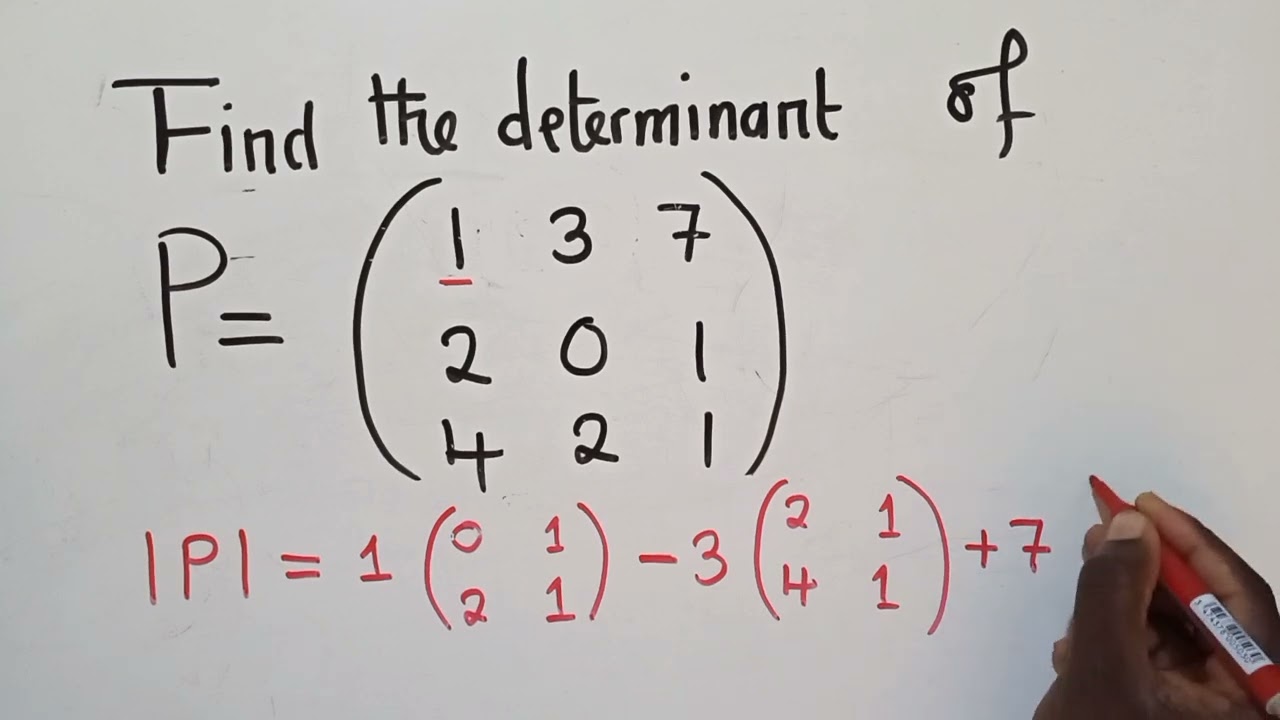 Find the determinant of
P= ( 1 3 7
2 0 1
4 2 1 )
|P| = 1 ( 0 1 ) - 3 ( 2 1 ) + 7
2 1 4 1